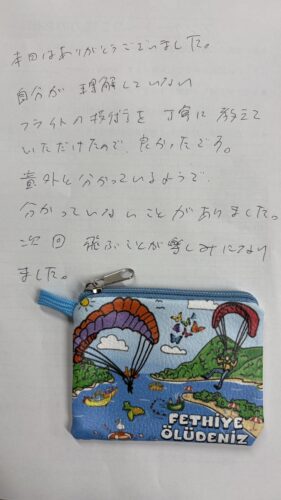 本日はありがとうございました。
自分が 理解していない
フライトの技術を 丁寧に 教えて
いただけたので、良かったです。
意外と分かっているようで、
分かっていないことがありました。
次回 飛ぶことが楽しみになり
ました。
FETHİYE
ÖLÜDENİZ